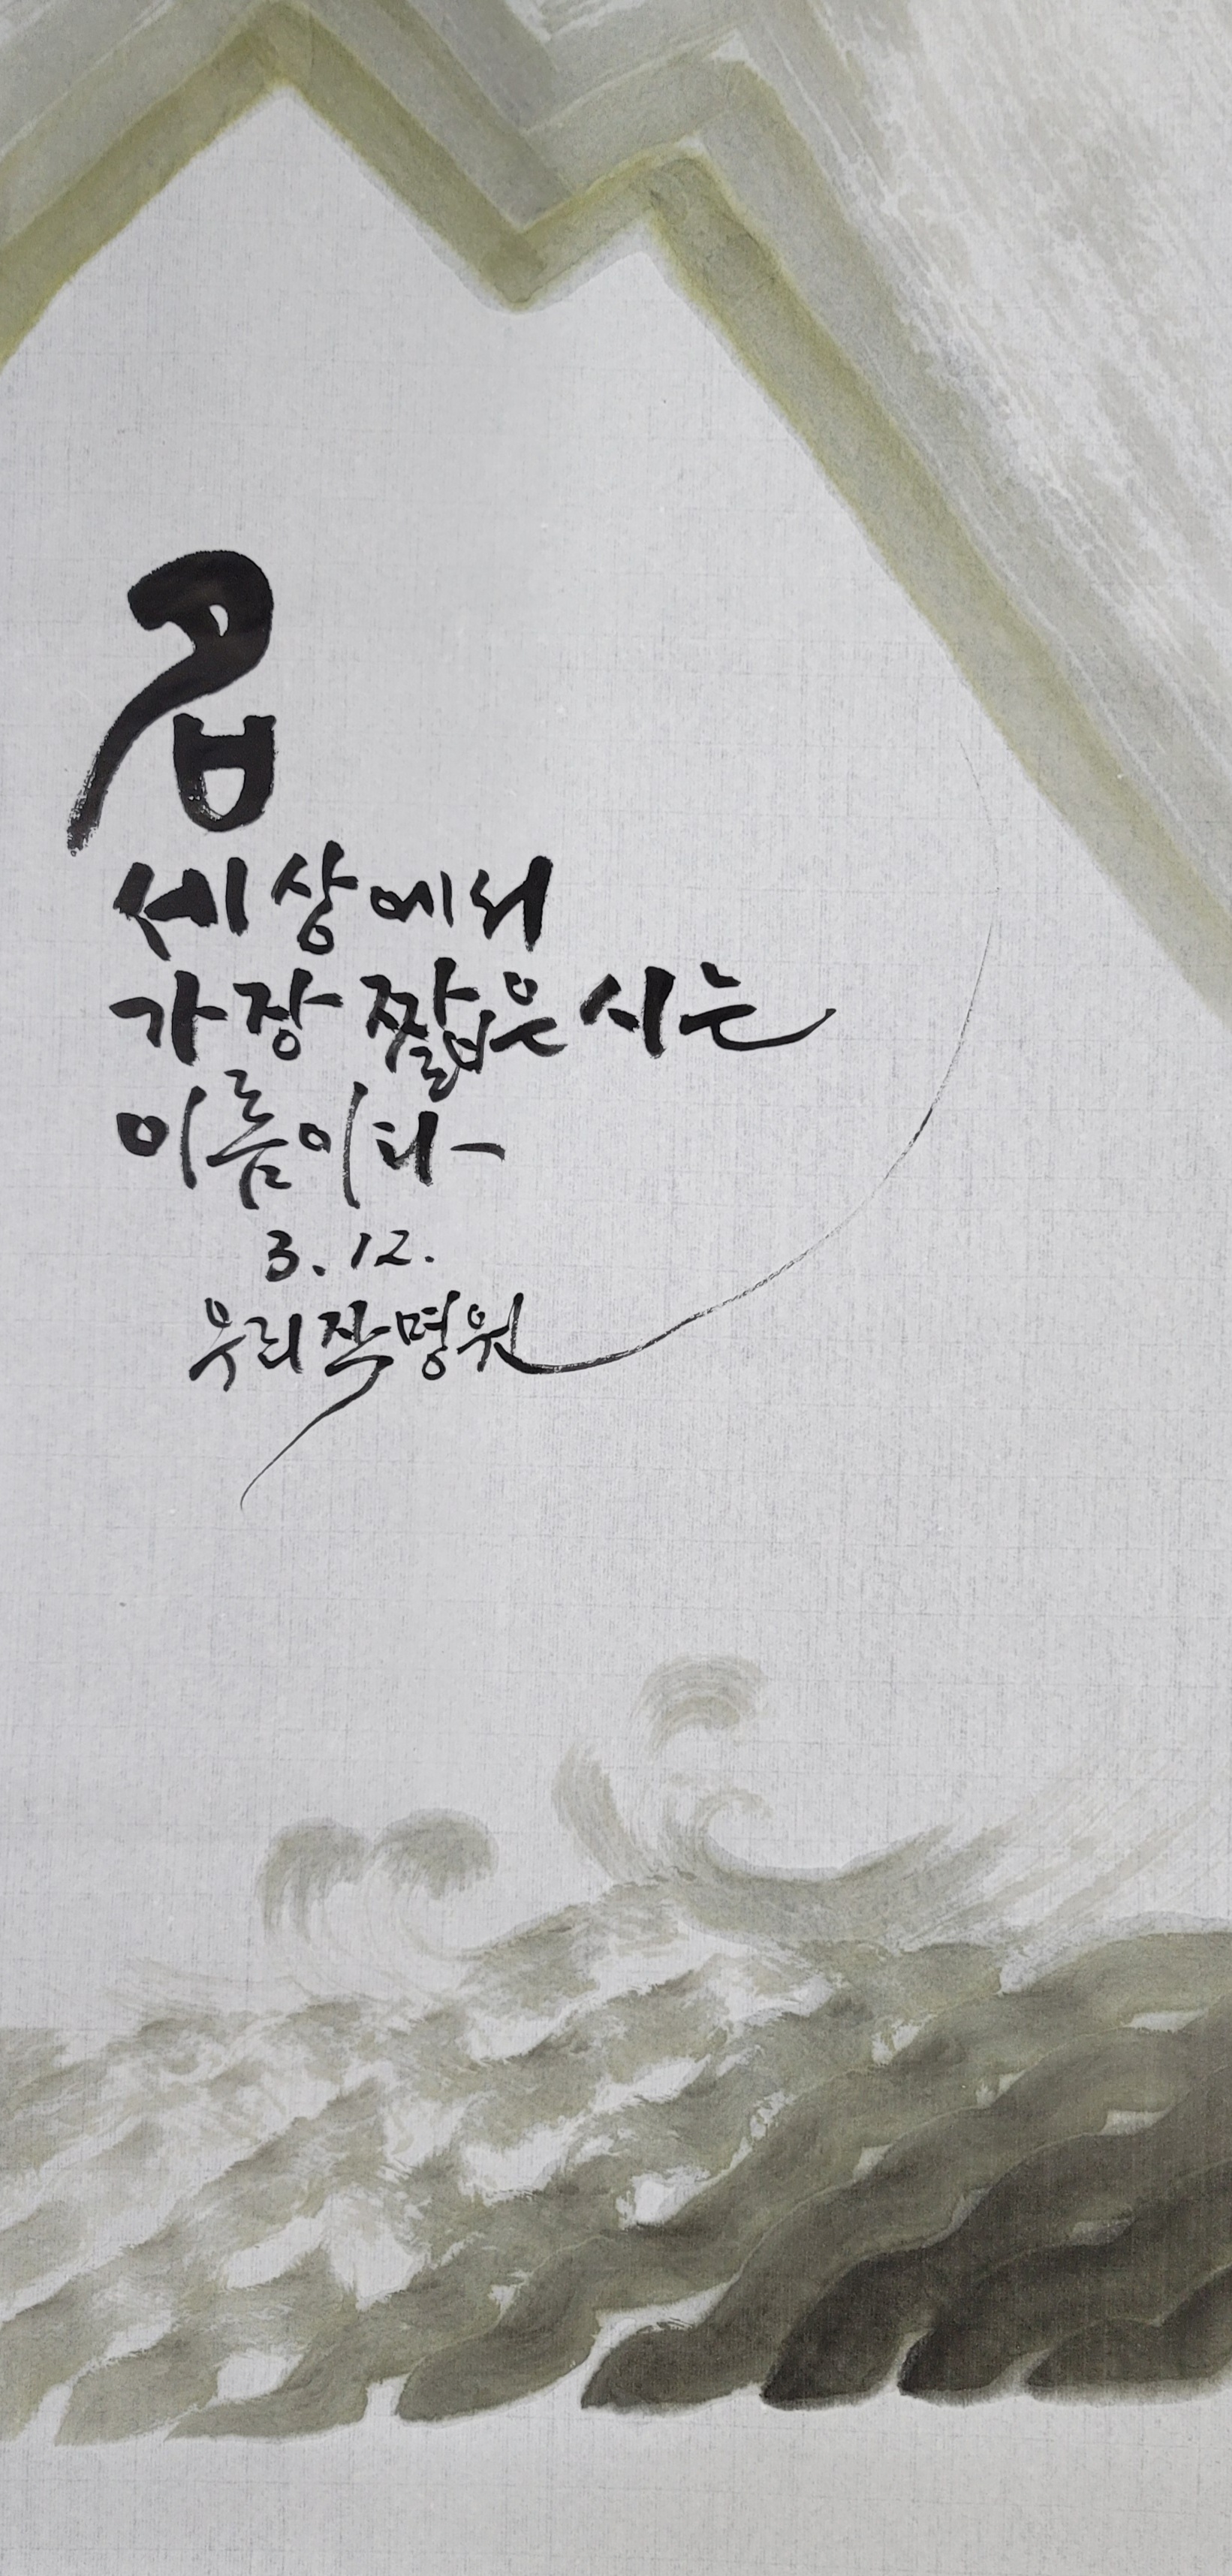 名
세상에서
가장 짧은 시는
이름이다
3.12.
우리작명원